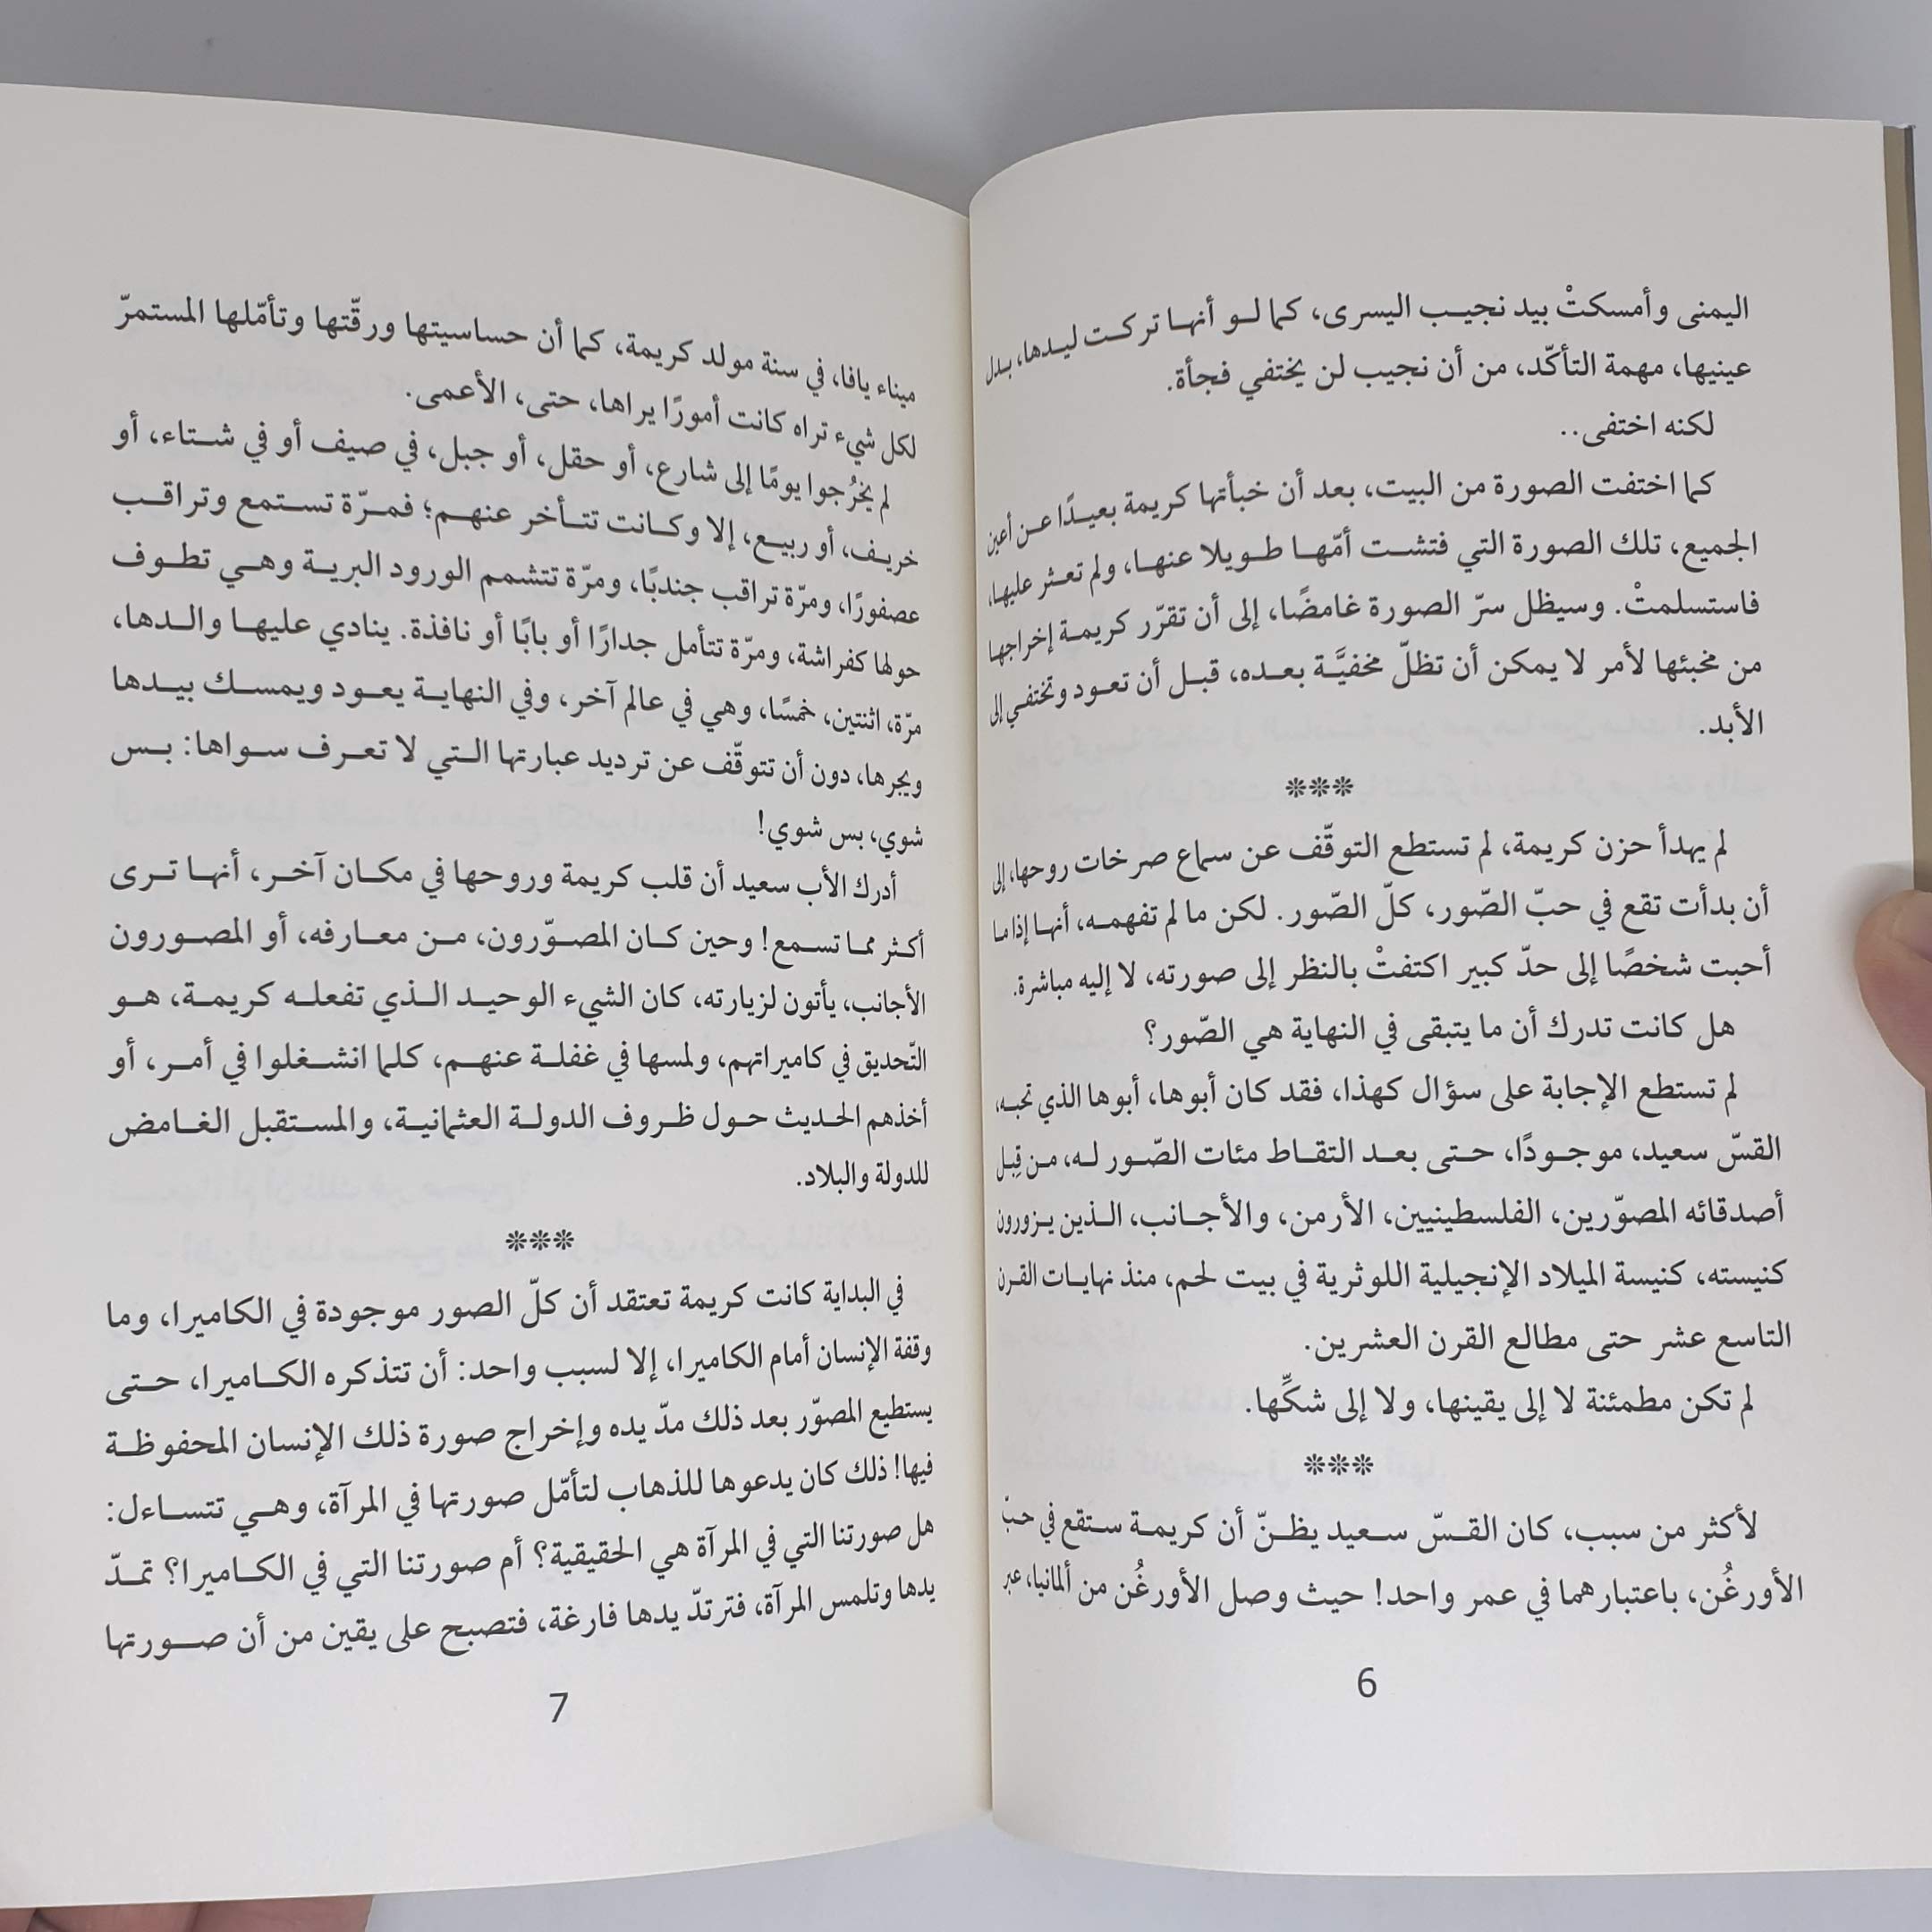 اليمنى وأمسكتْ بيد نجيب اليسرى، كما لو أنها تركت ليدها، بدل
عينيها، مهمة التأكّد، من أن نجيب لن يختفي فجأة.
لكنه اختفى..
كما اختفت الصورة من البيت، بعد أن خبأتها كريمة بعيدًا عن أعين
الجميع، تلك الصورة التي فتشت أمّها طويلا عنها، ولم تعثر عليها،
فاستسلمتْ. وسيظل سرّ الصورة غامضًا، إلى أن تقرّر كريمة إخراجها
من مخبئها لأمر لا يمكن أن تظلّ مخفيَّة بعده، قبل أن تعود وتختفي إلى
الأبد.
***
لم يهدأ حزن كريمة، لم تستطع التوقّف عن سماع صرخات روحها، إلى
أن بدأت تقع في حبّ الصّور، كلّ الصّور. لكن ما لم تفهمه، أنها إذا ما
أحبت شخصًا إلى حدّ كبير اكتفتْ بالنظر إلى صورته، لا إليه مباشرة.
هل كانت تدرك أن ما يتبقى في النهاية هي الصّور؟
لم تستطع الإجابة على سؤال كهذا، فقد كان أبوها، أبوها الذي تحبه،
القسّ سعيد، موجودًا، حتى بعد التقاط مئات الصّور له، من قِبل
أصدقائه المصوّرين، الفلسطينيين، الأرمن، والأجانب، الذين يزورون
كنيسته، كنيسة الميلاد الإنجيلية اللوثرية في بيت لحم، منذ نهايات القرن
التاسع عشر حتى مطالع القرن العشرين.
لم تكن مطمئنة لا إلى يقينها، ولا إلى شكِّها.
***
لأكثر من سبب، كان القسّ سعيد يظنّ أن كريمة ستقع في حبّ
الأورغُن، باعتبارهما في عمر واحد! حيث وصل الأورغُن من ألمانيا، عبر
6
ميناء يافا، في سنة مولد كريمة، كما أن حساسيتها ورقّتها وتأمّلها المستمرّ
لكل شيء تراه كانت أمورًا يراها، حتى، الأعمى.
لم يخرُجوا يومًا إلى شارع، أو حقل، أو جبل، في صيف أو في شتاء، أو
خريف، أو ربيع، إلا وكانت تتأخر عنهم؛ فمرّة تستمع وتراقب
عصفورًا، ومرّة تراقب جندبًا، ومرّة تتشمم الورود البرية وهي تطوف
حولها كفراشة، ومرّة تتأمل جدارًا أو بابًا أو نافذة. ينادي عليها والدها،
مرّة، اثنتين، خمسًا، وهي في عالم آخر، وفي النهاية يعود ويمسك بيدها
ويجرها، دون أن تتوقّف عن ترديد عبارتها التي لا تعرف سواها: بس
شوي، بس شوي!
أدرك الأب سعيد أن قلب كريمة وروحها في مكان آخر، أنها ترى
أكثر مما تسمع! وحين كان المصوّرون، من معارفه، أو المصورون
الأجانب، يأتون لزيارته، كان الشيء الوحيد الذي تفعله كريمة، هو
التّحديق في كاميراتهم، ولمسها في غفلة عنهم، كلما انشغلوا في أمر، أو
أخذهم الحديث حول ظروف الدولة العثمانية، والمستقبل الغامض
للدولة والبلاد.
***
في البداية كانت كريمة تعتقد أن كلّ الصور موجودة في الكاميرا، وما
وقفة الإنسان أمام الكاميرا، إلا لسبب واحد: أن تتذكره الكاميرا، حتى
يستطيع المصوّر بعد ذلك مدّ يده وإخراج صورة ذلك الإنسان المحفوظة
فيها! ذلك كان يدعوها للذهاب لتأمّل صورتها في المرآة، وهي تتساءل:
هل صورتنا التي في المرآة هي الحقيقية؟ أم صورتنا التي في الكاميرا؟ تمدّ
يدها وتلمس المرآة، فترتدّ يدها فارغة، فتصبح على يقين من أن صورتها
7